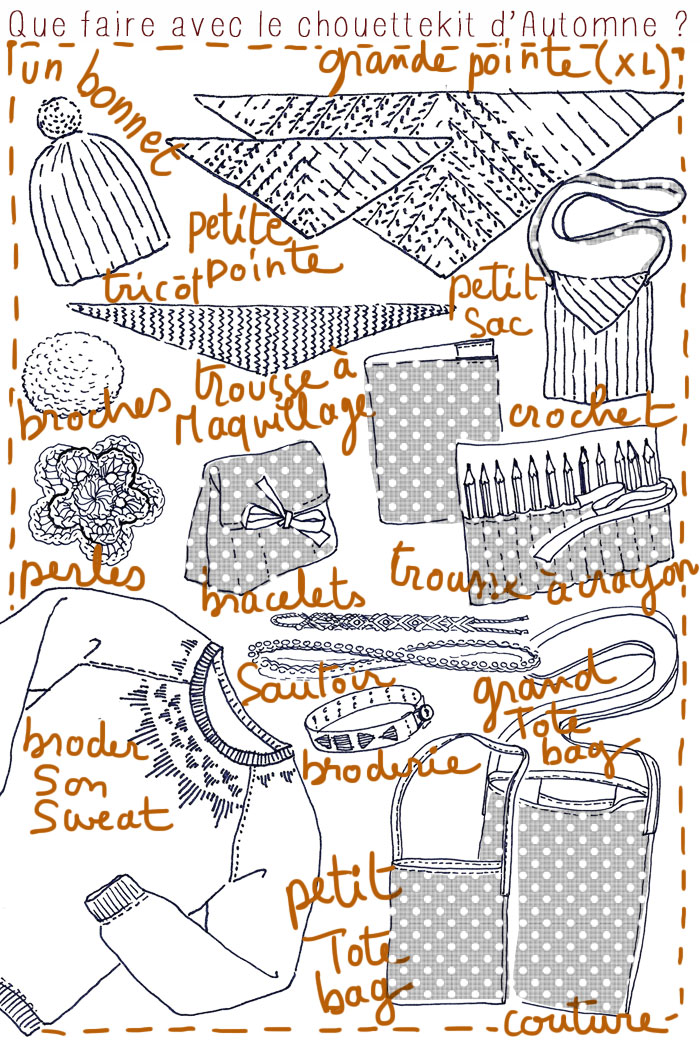 Que faire avec le chouettekit d'Automne ?
un bonnet
grande pointe (XL)
petite
pointe
tricot
petit
sac
trousse à
Maquillage
broches
crochet
perles
bracelets
trousse à crayon
Sautoir
grand
Tote
bag
broder
Son
Sweat
broderie
petit
Tote
bag
couture